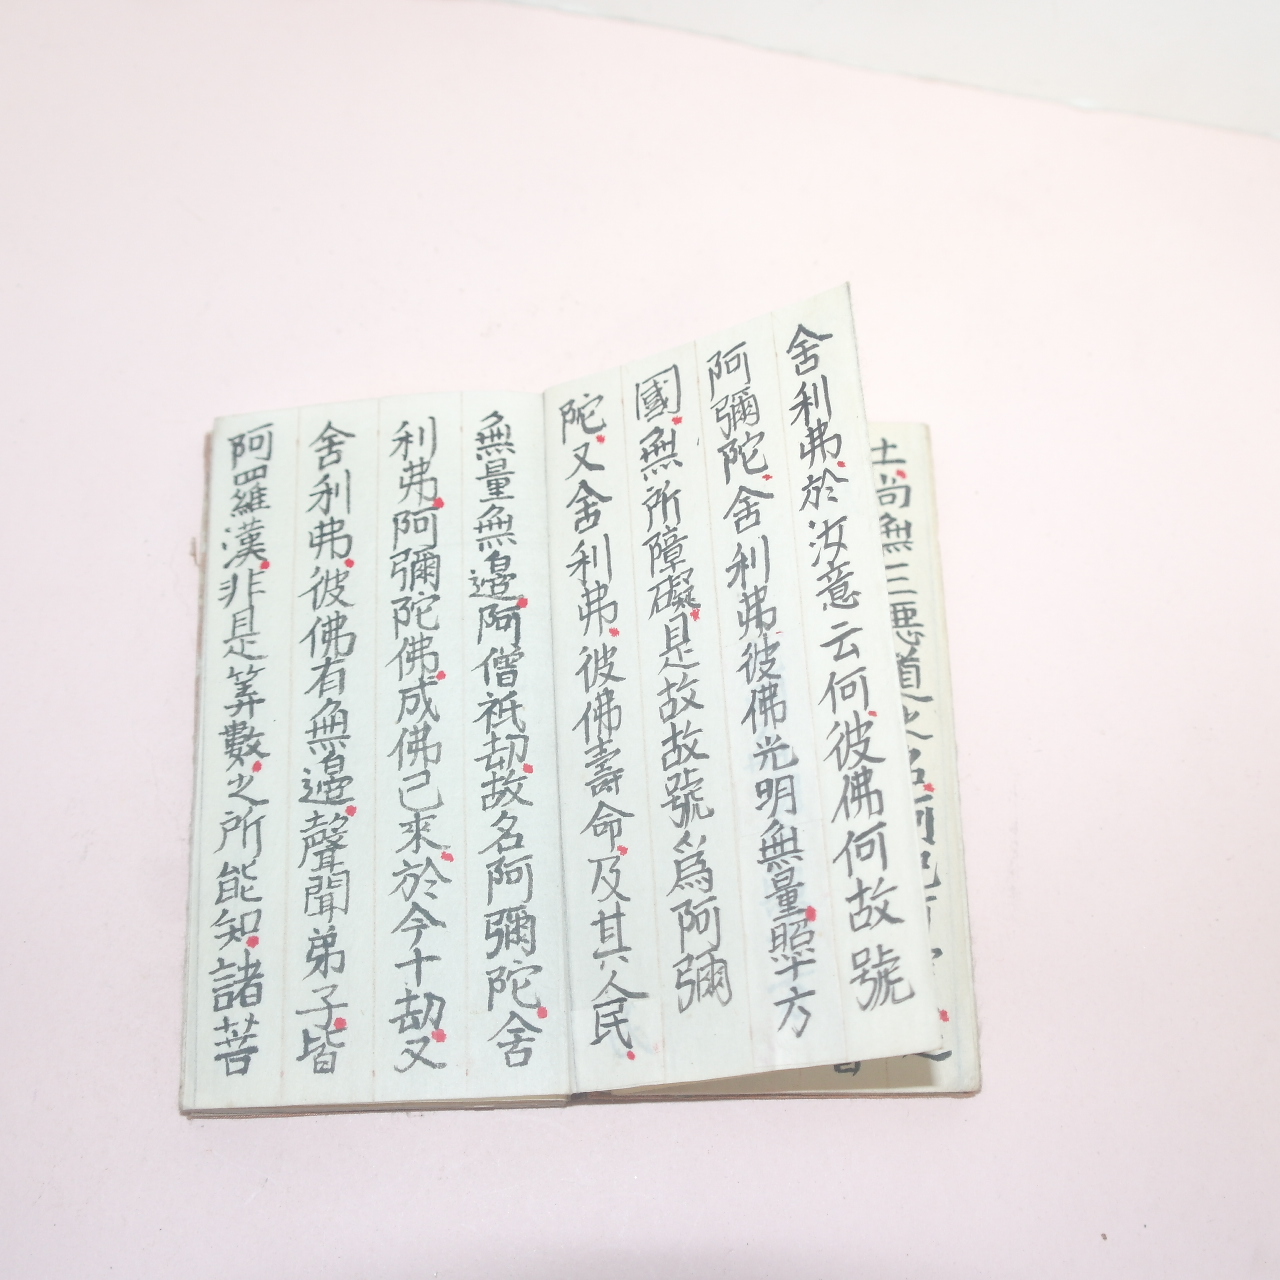 土尚無三惡道之名
舍利弗於汝意云何彼佛何故號
阿彌陀舍利弗彼佛光明無量照十方
國無所障礙是故故號爲阿彌
陀又舍利弗彼佛壽命及其人民
無量無邊阿僧祇劫故名阿彌陀舍
利弗阿彌陀佛成佛已來於今十劫又
舍利弗彼佛有無邊聲聞弟子皆
阿羅漢非是筭數之所能知諸菩